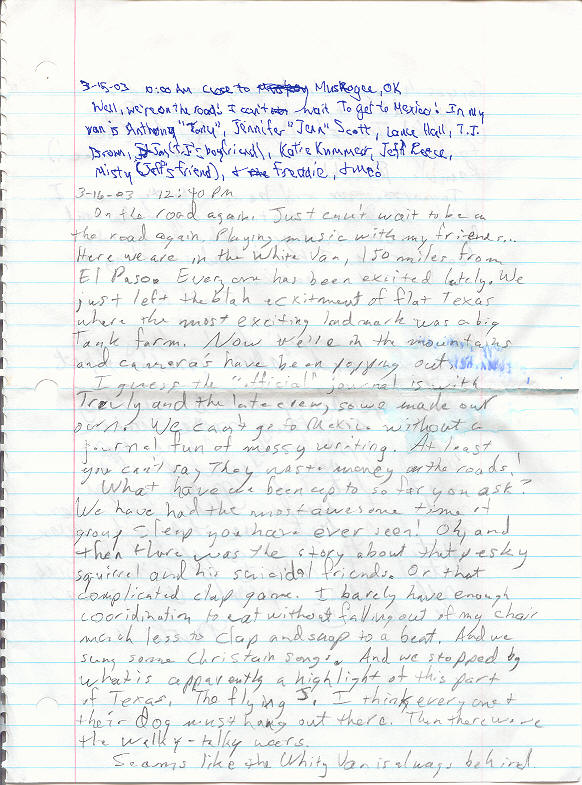 3-15-03 10:00 Am close to Muskogee, OK
Well, we're on the road! I can't wait To get to Mexico! In my
van is Anthony "Tony", Jennifer "Jenn" Scott, Lance Hall, T.J.
Brown, Jon (T.J.'s boyfriend), Katie Kummer, Jeff Reese,
Misty (Jeff's friend), & Freddie, & Me!
3-16-03 12:40 PM
On the road again. Just can't wait to be on
the road again. Playing music with my friends...
Here we are in the White Van, 150 miles from
El Paso. Everyone has been exiited lately. We
just left the blah eckitment of flat Texas
where the most exciting landmark was a big
Tank farm. Now we're in the mountains
and camera's have been popping out.
I guess the "official" journal is with
and the late crew, so we made our
own. We can't go to Mexico without a
journal fun of messy writing. At least
you can't say they waste money on the roads!
What have we been up to so far you ask?
We have had the most awesome time of
group sleep you have ever seen! Oh, and
then there was the story about that pesky
squirrel and his suicidal friends. Or that
complicated clap game. I barely have enough
cooridination to eat without falling out of my chair
much less to clap and snap to a beat. And we
sung some Christain songs. And we stopped by
what is apparently a highlight of this part
of Texas. The flying J. I think everyone &
their dog must hang out there. Then there were
the walky-talky wars.
Seams like the Whity Van is always behind.